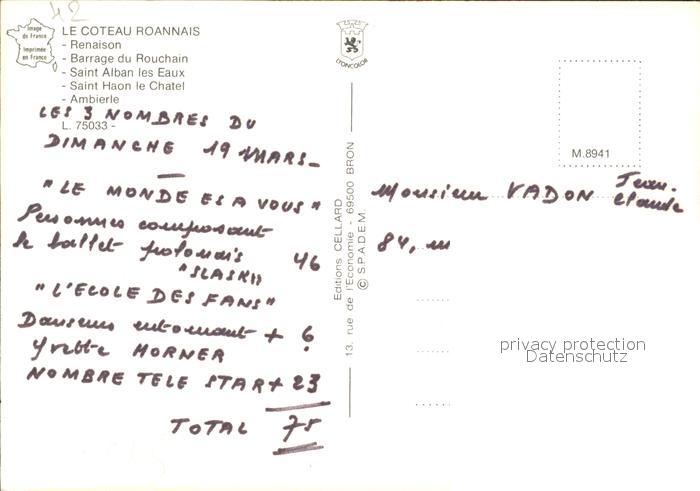 42
Image
de France
Imprimée
en France
LE COTEAU ROANNAIS
- Renaison
- Barrage du Rouchain
- Saint Alban les Eaux
- Saint Haon le Chatel
- Ambierle
L. 75033 -
LES 3 NOMBRES DU
DIMANCHE 19 MARS -
"LE MONDE ES A VOUS"
Personnes composant
le ballet polonais 46
"SLASK"
"L'ECOLE DES FANS"
Danseurs entourant + 6
Yvette HORNER
NOMBRE TELE STAR + 23
TOTAL 75
LYONCOLOR
Editions CELLARD
13, rue de l'Economie - 69500 BRON
© S.P.A.D.E.M.
M.8941
Monsieur VADON Jean-
Claude
84,
privacy protection
Datenschutz